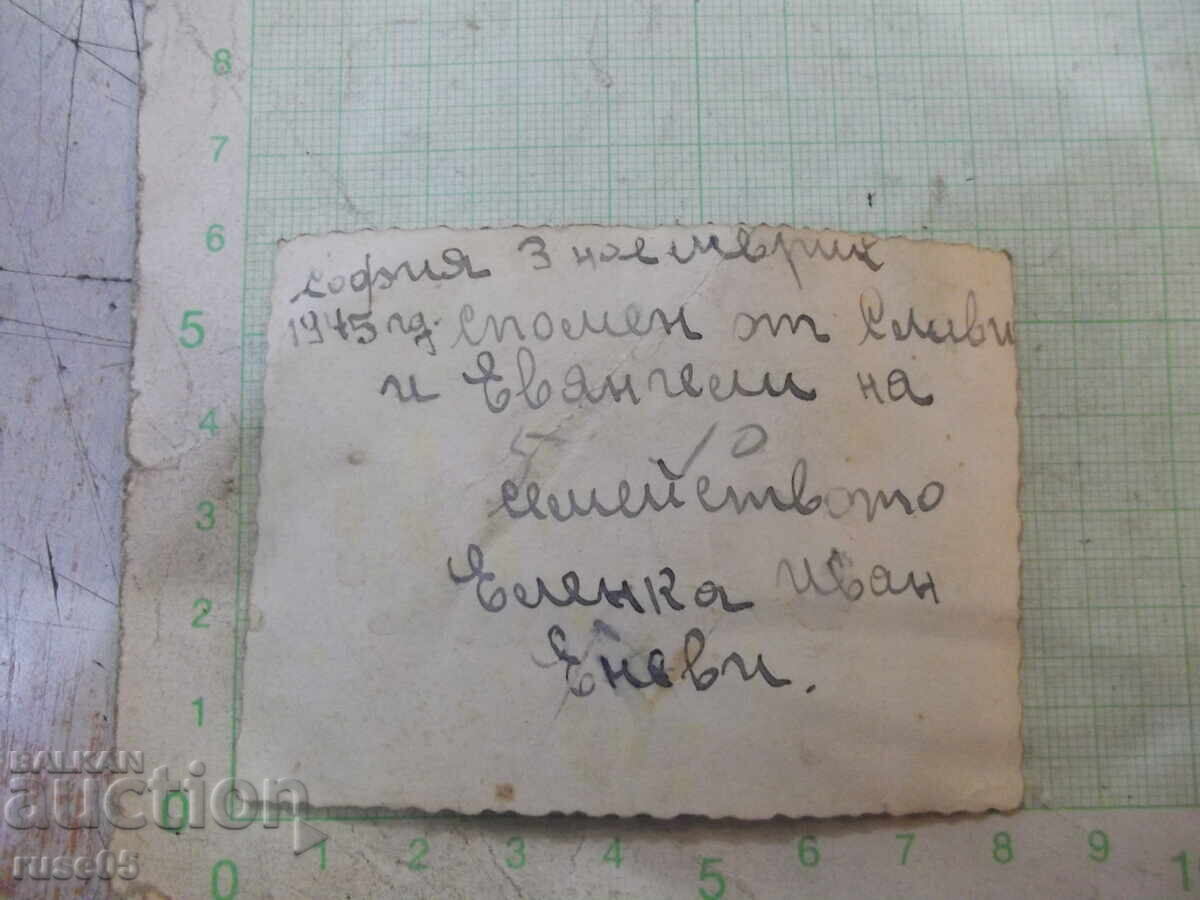 софия 3 ноемврих
1945 гд. спомен от Слави
и Евангели на
5 10
семейството
Еленка Иван
Еневи.
8
7
6
5
4
3
2
1
0
0 1 2 3 4 5 6 7 8 9 1
BALKAN
auction
ruse05